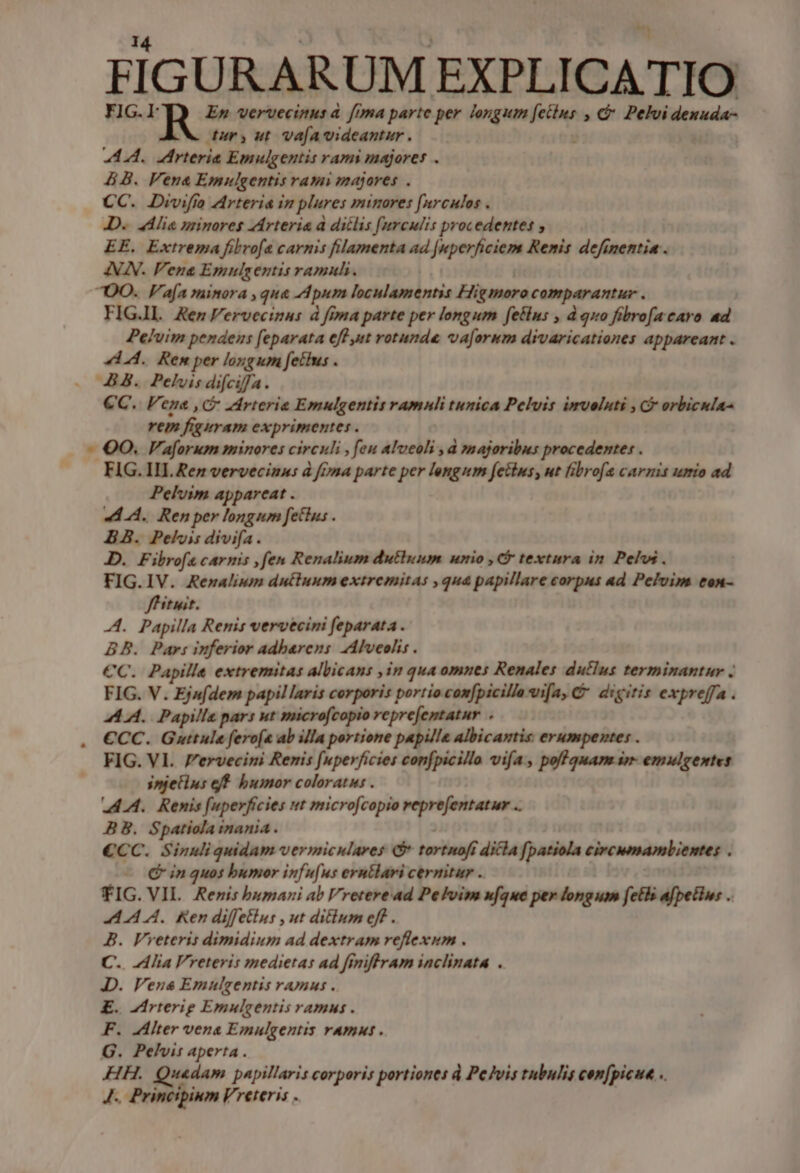 14
FIGURARUM EXPLICATIO
FIG. I. REn vervecinus à ſima parte per longum ſectus , & Pelvi denuda-
tur, ut vaſa videantur.
AA. Arteriæ Emulgentis rami majores .
BB. Venæ Emulgentis rami majores .
CC. Diviſio Arteriæ in plures minores ſurculos .
D. Aliæ minores Arteriæ à dictis ſurculis procedentes ,
EE. Extrema fibroſæ carnis filamenta ad ſuperficiem Renis deſinentia .
NN. Venæ Emulgentis ramuli.
OO. Vaſa minora , quæ Apum loculamentis Higmoro comparantur .
FIG.II. Ren Vervecinus à ſima parte per longum ſectus , à quo fibroſa caro ad
Pelvim pendens ſeparata eſt ,ut rotundæ vaſorum divaricationes appareant .
AA. Ren per longum ſectus .
BB. Pelvis diſciſſa.
CC. Venæ ,& Arteriæ Emulgentis ramuli tunica Pelvis involuti , & orbicula-
rem figuram exprimentes .
OO. Vaſorum minores circuli , ſeu alveoli , à majoribus procedentes .
FIG.III. Ren vervecinus à ſima parte per longum ſectus, ut fibroſæ carnis unio ad
Pelvim appareat .
AA. Ren per longum ſectus .
BB. Pelvis diviſa .
D. Fibroſæ carnis ,ſeu Renalium ductuum unio ,& textura in Pelvi .
FIG.IV. Renalium ductuum extremitas , quæ papillare corpus ad Pelvim con-
ſtituit.
A. Papilla Renis vervecini ſeparata .
BB. Pars inferior adhærens Alveolis .
CC. Papillæ extremitas albicans ,in qua omnes Renales ductus terminantur .
FIG. V. Ejuſdem papillaris corporis portio conſpicillo viſa, & digitis expreſſa .
AA. Papillæ pars ut microſcopio repreſentatur .
CCC. Guttulæ ſeroſæ ab illa portione papillæ albicantis erumpentes .
FIG. VI. Vervecini Renis ſuperficies conſpicillo viſa , poſtquam in emulgentes
injectus eſt humor coloratus .
AA. Renis ſuperficies ut microſcopio repreſentatur .
BB. Spatiola inania .
CCC. Sinuli quidam vermiculares & tortuoſi dicta ſpatiola circumambientes .
& in quos humor infuſus eructari cernitur .
FIG. VII. Renis humani ab Vretere ad Pelvim uſque per longum ſecti aſpectus .
AAA. Ren diſſectus , ut dictum eſt .
B. Vreteris dimidium ad dextram reflexum .
C. Alia Vreteris medietas ad ſiniſtram inclinata .
D. Venæ Emulgentis ramus .
E. Arteriæ Emulgentis ramus .
F. Alter venæ Emulgentis ramus .
G. Pelvis aperta .
HH. Quædam papillaris corporis portiones à Pelvis tubulis conſpicuæ .
I. Principium Vreteris .